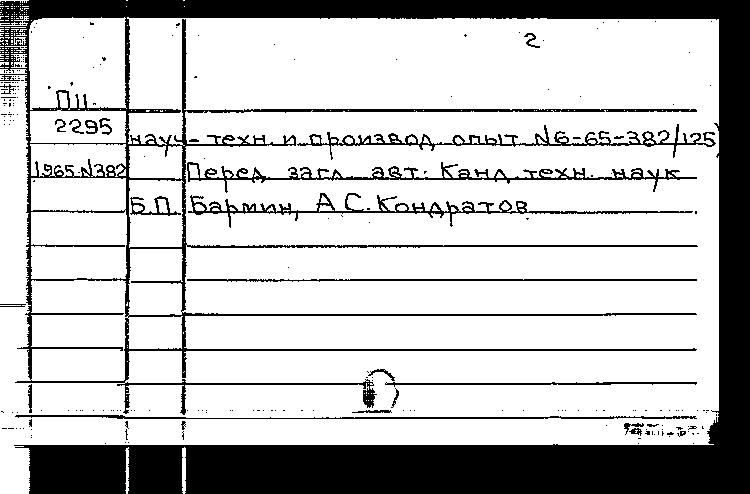 2
П11
2295
науч-техн. и производ. опыт № 6-65-382/125)
1965 N382 Перед загл. авт: Канд. техн. наук
Б.П. Бармин, А.С. Кондратов